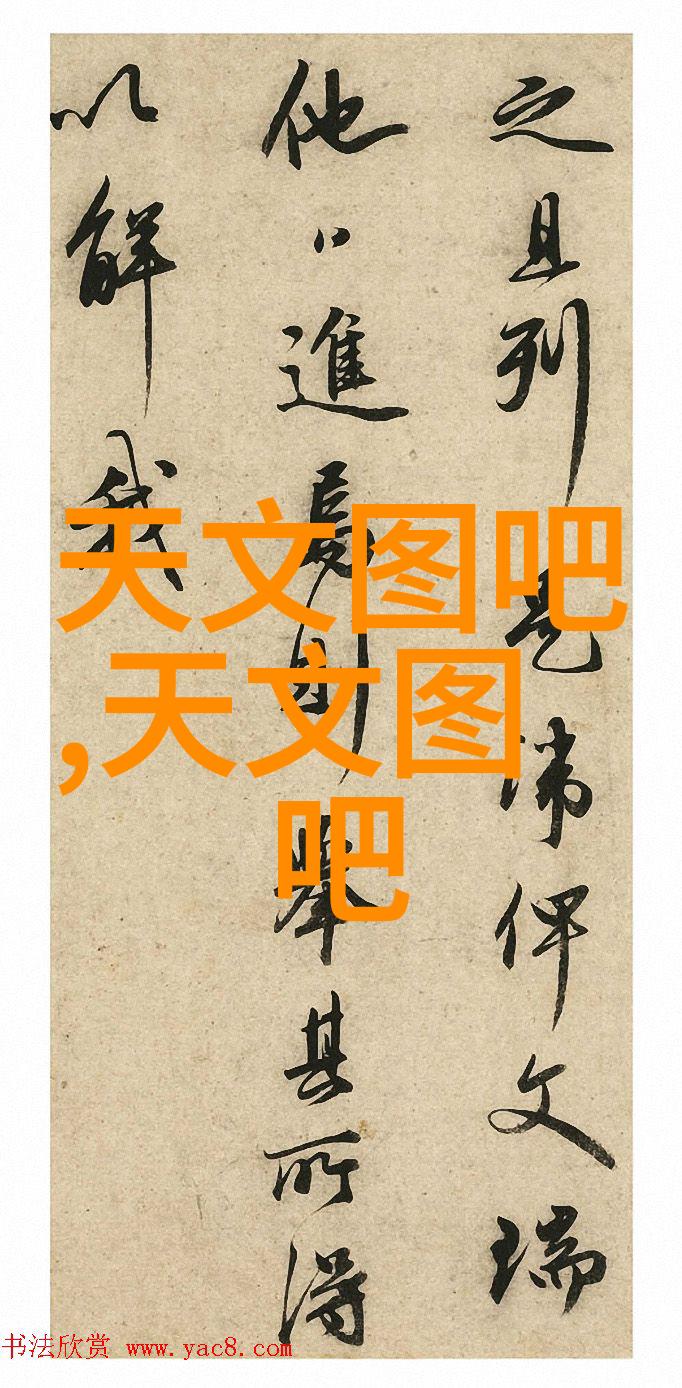 之且列是諱俾文瑞
他日進處則舉其所得
以解我
天文图吧
,天文图
吧
书法欣赏 www.yac8.com